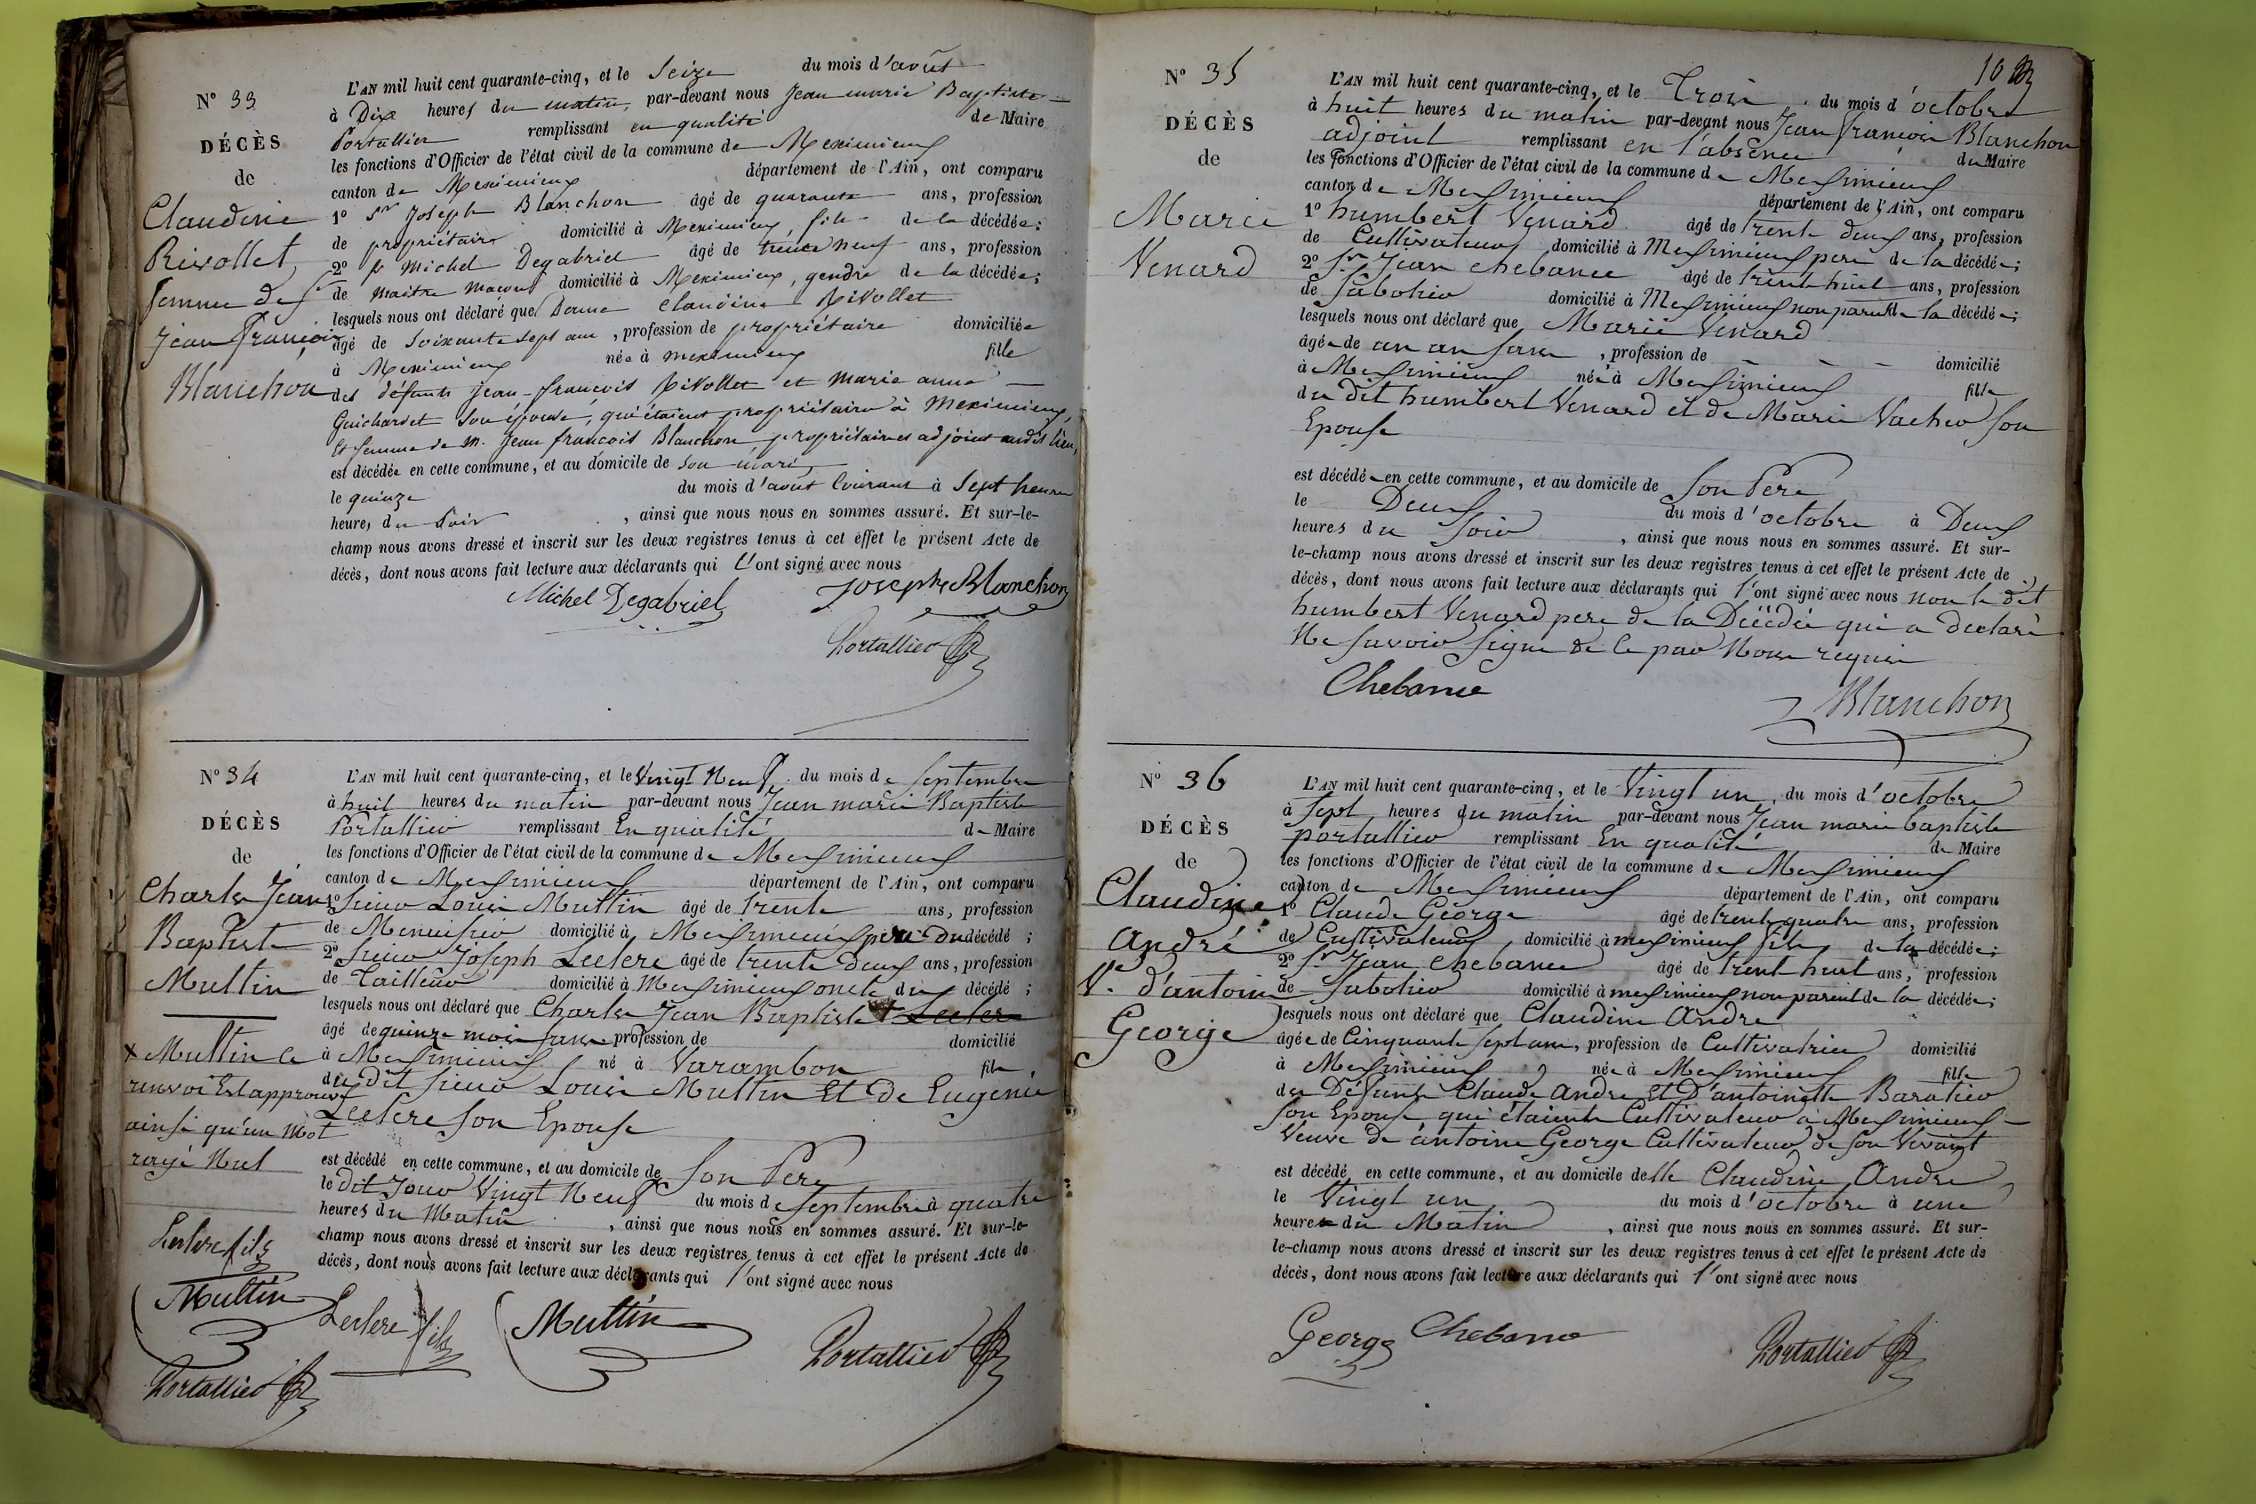 N° 33
DÉCÈS
de
Claudine
Rivollet,
femme de Sr
Jean François
Blanchon
L'AN mil huit cent quarante-cinq, et le Seize du mois d'août
à Dix heures du matin, par-devant nous Jean marie Baptiste
Portallier remplissant en qualité de Maire
les fonctions d'Officier de l'état civil de la commune de Meximieux
canton de Meximieux département de l'Ain, ont comparu
1° Sr Joseph Blanchon âgé de quarante ans, profession
de propriétaire domicilié à Meximieux, fils de la décédée;
2° Sr Michel Degabriel âgé de trente neuf ans, profession
de maitre maçon domicilié à Meximieux, gendre de la décédée;
lesquels nous ont déclaré que Dame Claudine Rivollet
âgé de Soixante sept ans, profession de propriétaire domiciliée
à Meximieux née à meximieux fille
des défunts Jean-françois Rivollet et marie anne
Guichardet son épouse, qui étaient propriétaires à Meximieux,
Et femme de M. Jean françois Blanchon propriétaire et adjoint audit lieu,
est décédée en cette commune, et au domicile de son mari,
le quinze du mois d'août Courant à Sept heures
heures du Soir, ainsi que nous nous en sommes assuré. Et sur-le-
champ nous avons dressé et inscrit sur les deux registres tenus à cet effet le présent Acte de
décès, dont nous avons fait lecture aux déclarants qui l'ont signé avec nous
Michel Degabriel Joseph Blanchon
Portallier
N° 34
DÉCÈS
de
Charles Jean
Baptiste
Multin
x Multin le
renvoi Est approuvé
ainsi qu'un Mot
rayé Nul
Leclere fils
Multin
Portallier
L'AN mil huit cent quarante-cinq, et le Vingt Neuf du mois de Septembre
à huit heures du matin par-devant nous Jean marie Baptiste
Portallier remplissant En qualité de Maire
les fonctions d'Officier de l'état civil de la commune de Meximieux
canton de Meximieux département de l'Ain, ont comparu
1° Sieur Louis Multin âgé de trente ans, profession
de Menuisier domicilié à Meximieux père du décédé;
2° Sieur Joseph Leclere âgé de trente deux ans, profession
de Tailleur domicilié à Meximieux oncle du décédé;
lesquels nous ont déclaré que Charles Jean Baptiste x Leclere
âgé de quinze mois sans profession de domicilié
à Meximieux né à Varambon fils
du dit Sieur Louis Multin Et de Eugénie
Leclere son Epouse
est décédé en cette commune, et au domicile de Son Pere
le dit Jour Vingt Neuf du mois de Septembre à quatre
heures du Matin, ainsi que nous nous en sommes assuré. Et sur-le-
champ nous avons dressé et inscrit sur les deux registres tenus à cet effet le présent Acte de
décès, dont nous avons fait lecture aux déclarants qui l'ont signé avec nous
Leclere fils Multin Portallier
10
N° 35
DÉCÈS
de
Marie
Venard
L'AN mil huit cent quarante-cinq, et le Trois du mois d'octobre
à huit heures du matin par-devant nous Jean françois Blanchon
adjoint remplissant en l'absence du Maire
les fonctions d'Officier de l'état civil de la commune de Meximieux
canton de Meximieux département de l'Ain, ont comparu
1° humbert Venard âgé de trente deux ans, profession
de Cultivateur domicilié à Meximieux pere de la décédée;
2° Sr Jean Chebance âgé de trente huit ans, profession
de Sabotier domicilié à Meximieux non parent de la décédée;
lesquels nous ont déclaré que Marie Venard
âgée de un an sans, profession de - - - domicilié
à Meximieux née à Meximieux fille
du dit humbert Venard et de Marie Vacher son
Epouse
est décédé en cette commune, et au domicile de Son Pere
le Deux du mois d'octobre à Deux
heures du Soir, ainsi que nous nous en sommes assuré. Et sur-
le-champ nous avons dressé et inscrit sur les deux registres tenus à cet effet le présent Acte de
décès, dont nous avons fait lecture aux déclarants qui l'ont signé avec nous non le dit
humbert Venard pere de la Décédée qui a declaré
Ne savoir signe de ce par Nous requis
Chebance Blanchon
N° 36
DÉCÈS
de
Claudine
André
Ve d'antoine
George
L'AN mil huit cent quarante-cinq, et le Vingt un, du mois d'octobre
à Sept heures du matin par-devant nous Jean marie baptiste
portallier remplissant En qualité de Maire
les fonctions d'Officier de l'état civil de la commune de Meximieux
canton de Meximieux département de l'Ain, ont comparu
1° Claude George âgé de trente quatre ans, profession
de Cultivateur, domicilié à meximieux fils de la décédée;
2° Sr Jean Chebance âgé de trente huit ans, profession
de Sabotier domicilié à meximieux non parent de la décédée;
lesquels nous ont déclaré que Claudine Andre
âgée de Cinquante Sept ans, profession de Cultivatrice domicilié
à Meximieux née à Meximieux fille
des Défunts Claude Andre Et D'antoinette Baratier
son Epouse qui étaient Cultivateur à Meximieux
Veuve de antoine George Cultivateur de son Vivant
est décédé en cette commune, et au domicile de lle Claudine Andre
le Vingt un du mois d'octobre à une
heure du Matin, ainsi que nous nous en sommes assuré. Et sur-
le-champ nous avons dressé et inscrit sur les deux registres tenus à cet effet le présent Acte de
décès, dont nous avons fait lecture aux déclarants qui l'ont signé avec nous
George Chebance Portallier